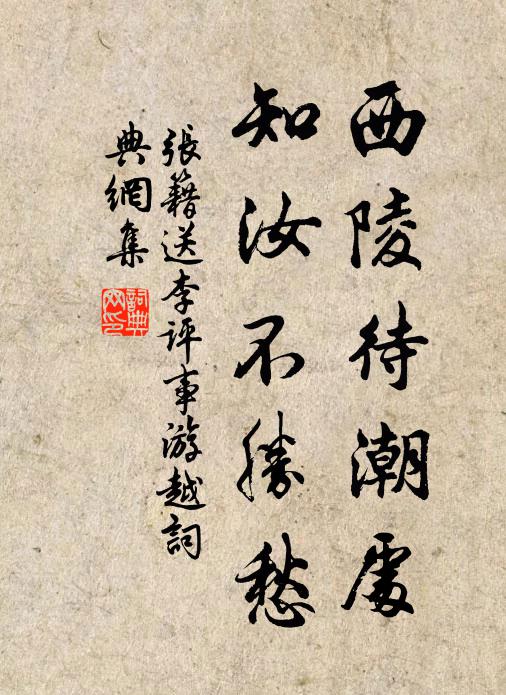 西陵待潮處
知汝不勝愁
張籍送李評事游越詞
典網集
詞典
网印